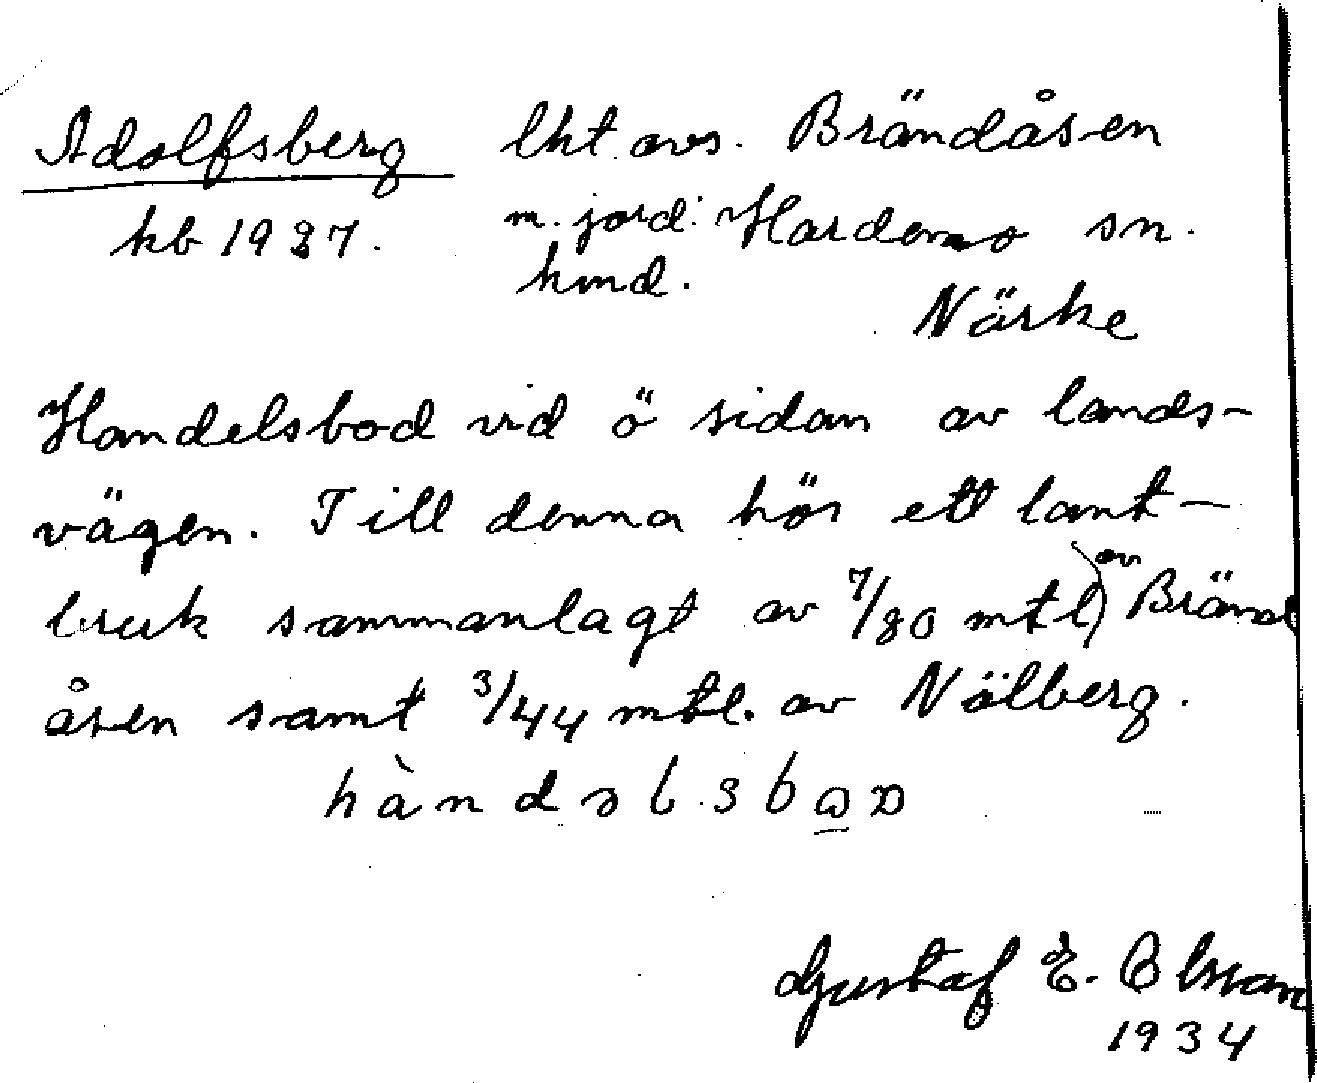 Adolfsberg lht avs. Brändåsen
kb 1927. m. jord: Hardemo sn.
hmd.
Närke
Handelsbod vid ö sidan av lands-
vägen. Till denna hör ett lant-
bruk sammanlagt av 7/80 mtl) av Bränd
åsen samt 3/44 mtl. av Nälberg.
Gustaf E. Olsson
1934